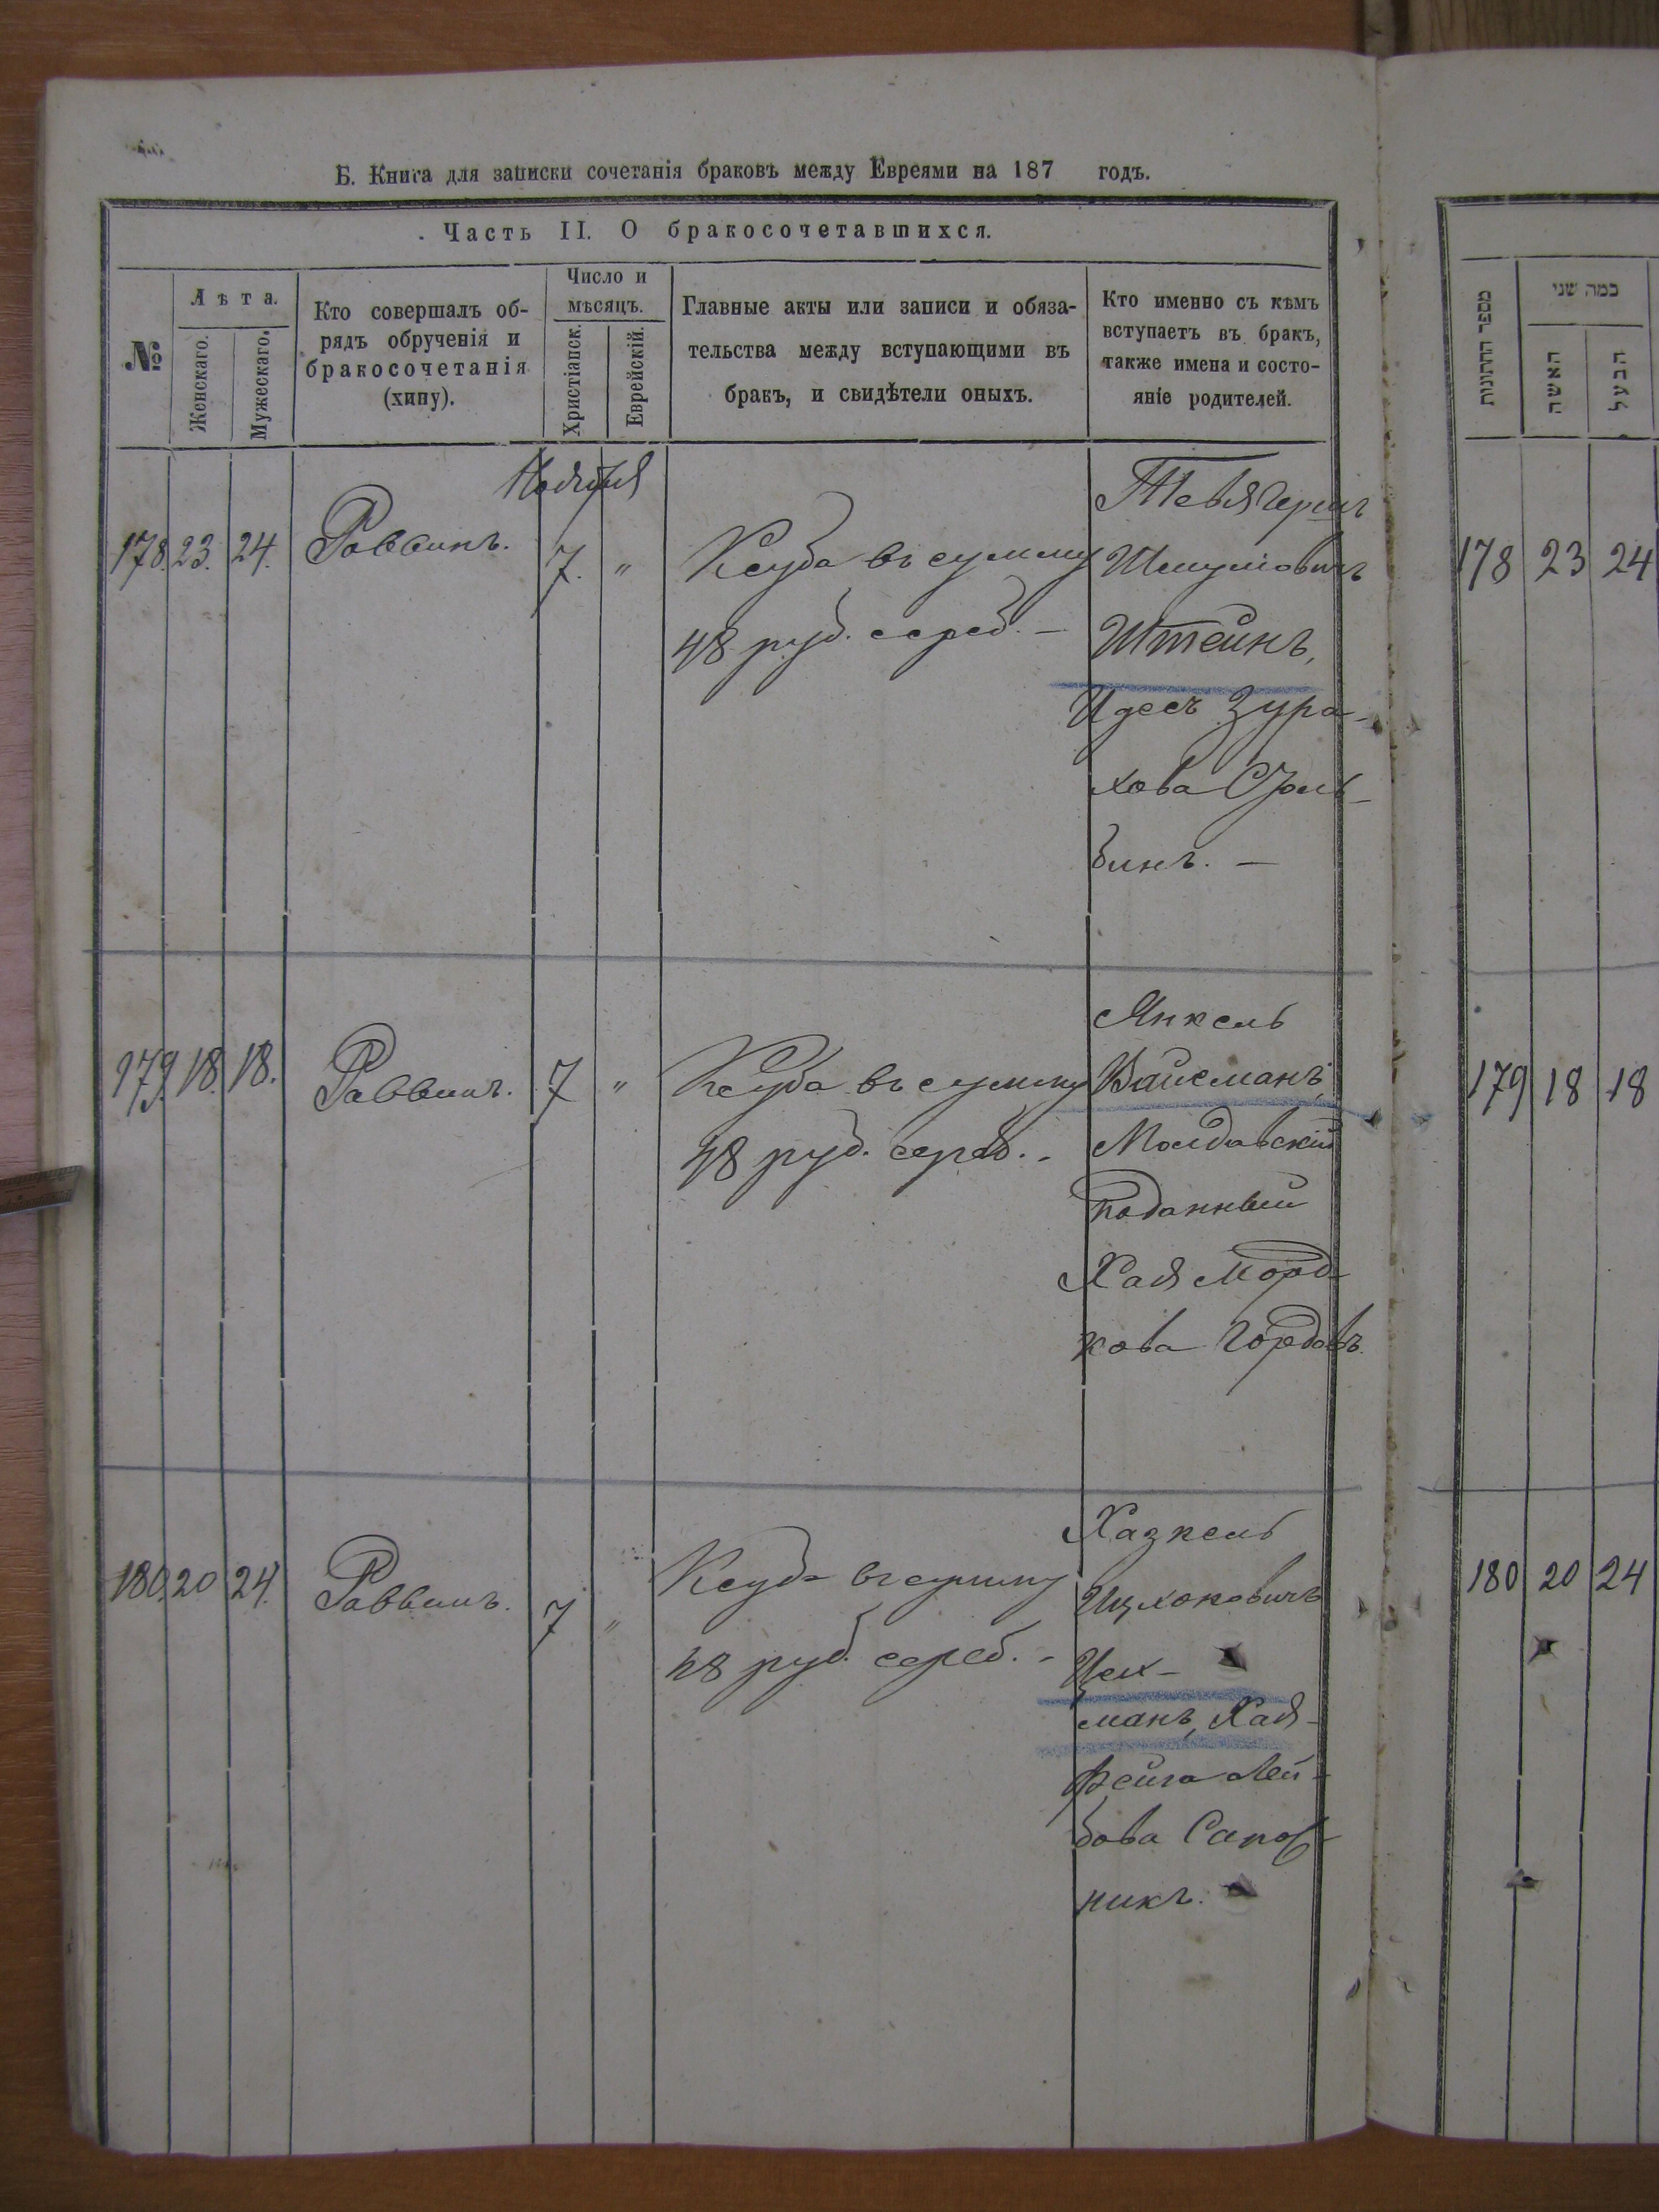 Б. Книга для записки сочетанія браковъ между Евреями на 187 годъ.
Часть II. О бракосочетавшихся.
№
Лѣта.
Женскаго.
Мужескаго.
Кто совершалъ об-
рядъ обрученія и
бракосочетанія
(хипу).
Число и
мѣсяцъ.
Христіанск.
Еврейскій.
Главные акты или записи и обяза-
тельства между вступающими въ
бракъ, и свидѣтели оныхъ.
Кто именно съ кѣмъ
вступаетъ въ бракъ,
также имена и состо-
яніе родителей.
מספר החתונות
כמה שני
האשה
הבעל
Ноября
178. 23. 24. Раввинъ. 7. "
Ксуба въ сумму
48 руб. сереб. —
Тевья Герш
Шмулiовичъ
Штейнъ,
Идесъ Зура-
хова
бинъ. —
178 23 24
179. 18. 18. Раввинъ. 7 "
Ксуба въ сумму
48 руб. сереб. -
Янкель
Вайсманъ,
Молдавскій
поданный
Хая Морд-
кова
179 18 18
180. 20 24. Раввинъ. 7 "
Ксуба въ сумму
48 руб. сереб. -
Хазкель
Ицхоковичъ
Цех-
манъ, Хая-
Фейга Лей-
бова Сапож-
никъ.
180 20 24